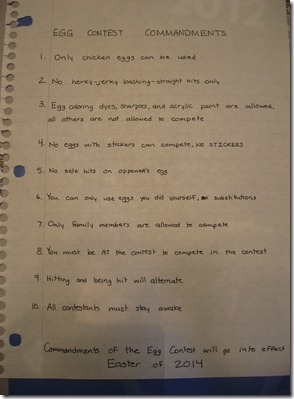 EGG CONTEST COMMANDMENTS
1. Only chicken eggs can be used
2. No herky-jerky bashing-straight hits only
3. Egg coloring dyes, sharpies, and acrylic paint are allowed,
all others are not allowed to compete
4. No eggs with stickers can compete, NO STICKERS
5. No side hits on opponent's egg
6. You can only use eggs you did yourself, substitutions
7. Only family members are allowed to compete
8. You must be AT the contest to compete in the contest
9. Hitting and being hit will alternate
10. All contestants must stay awake
Commandments of the Egg Contest will go into effect
Easter of 2014